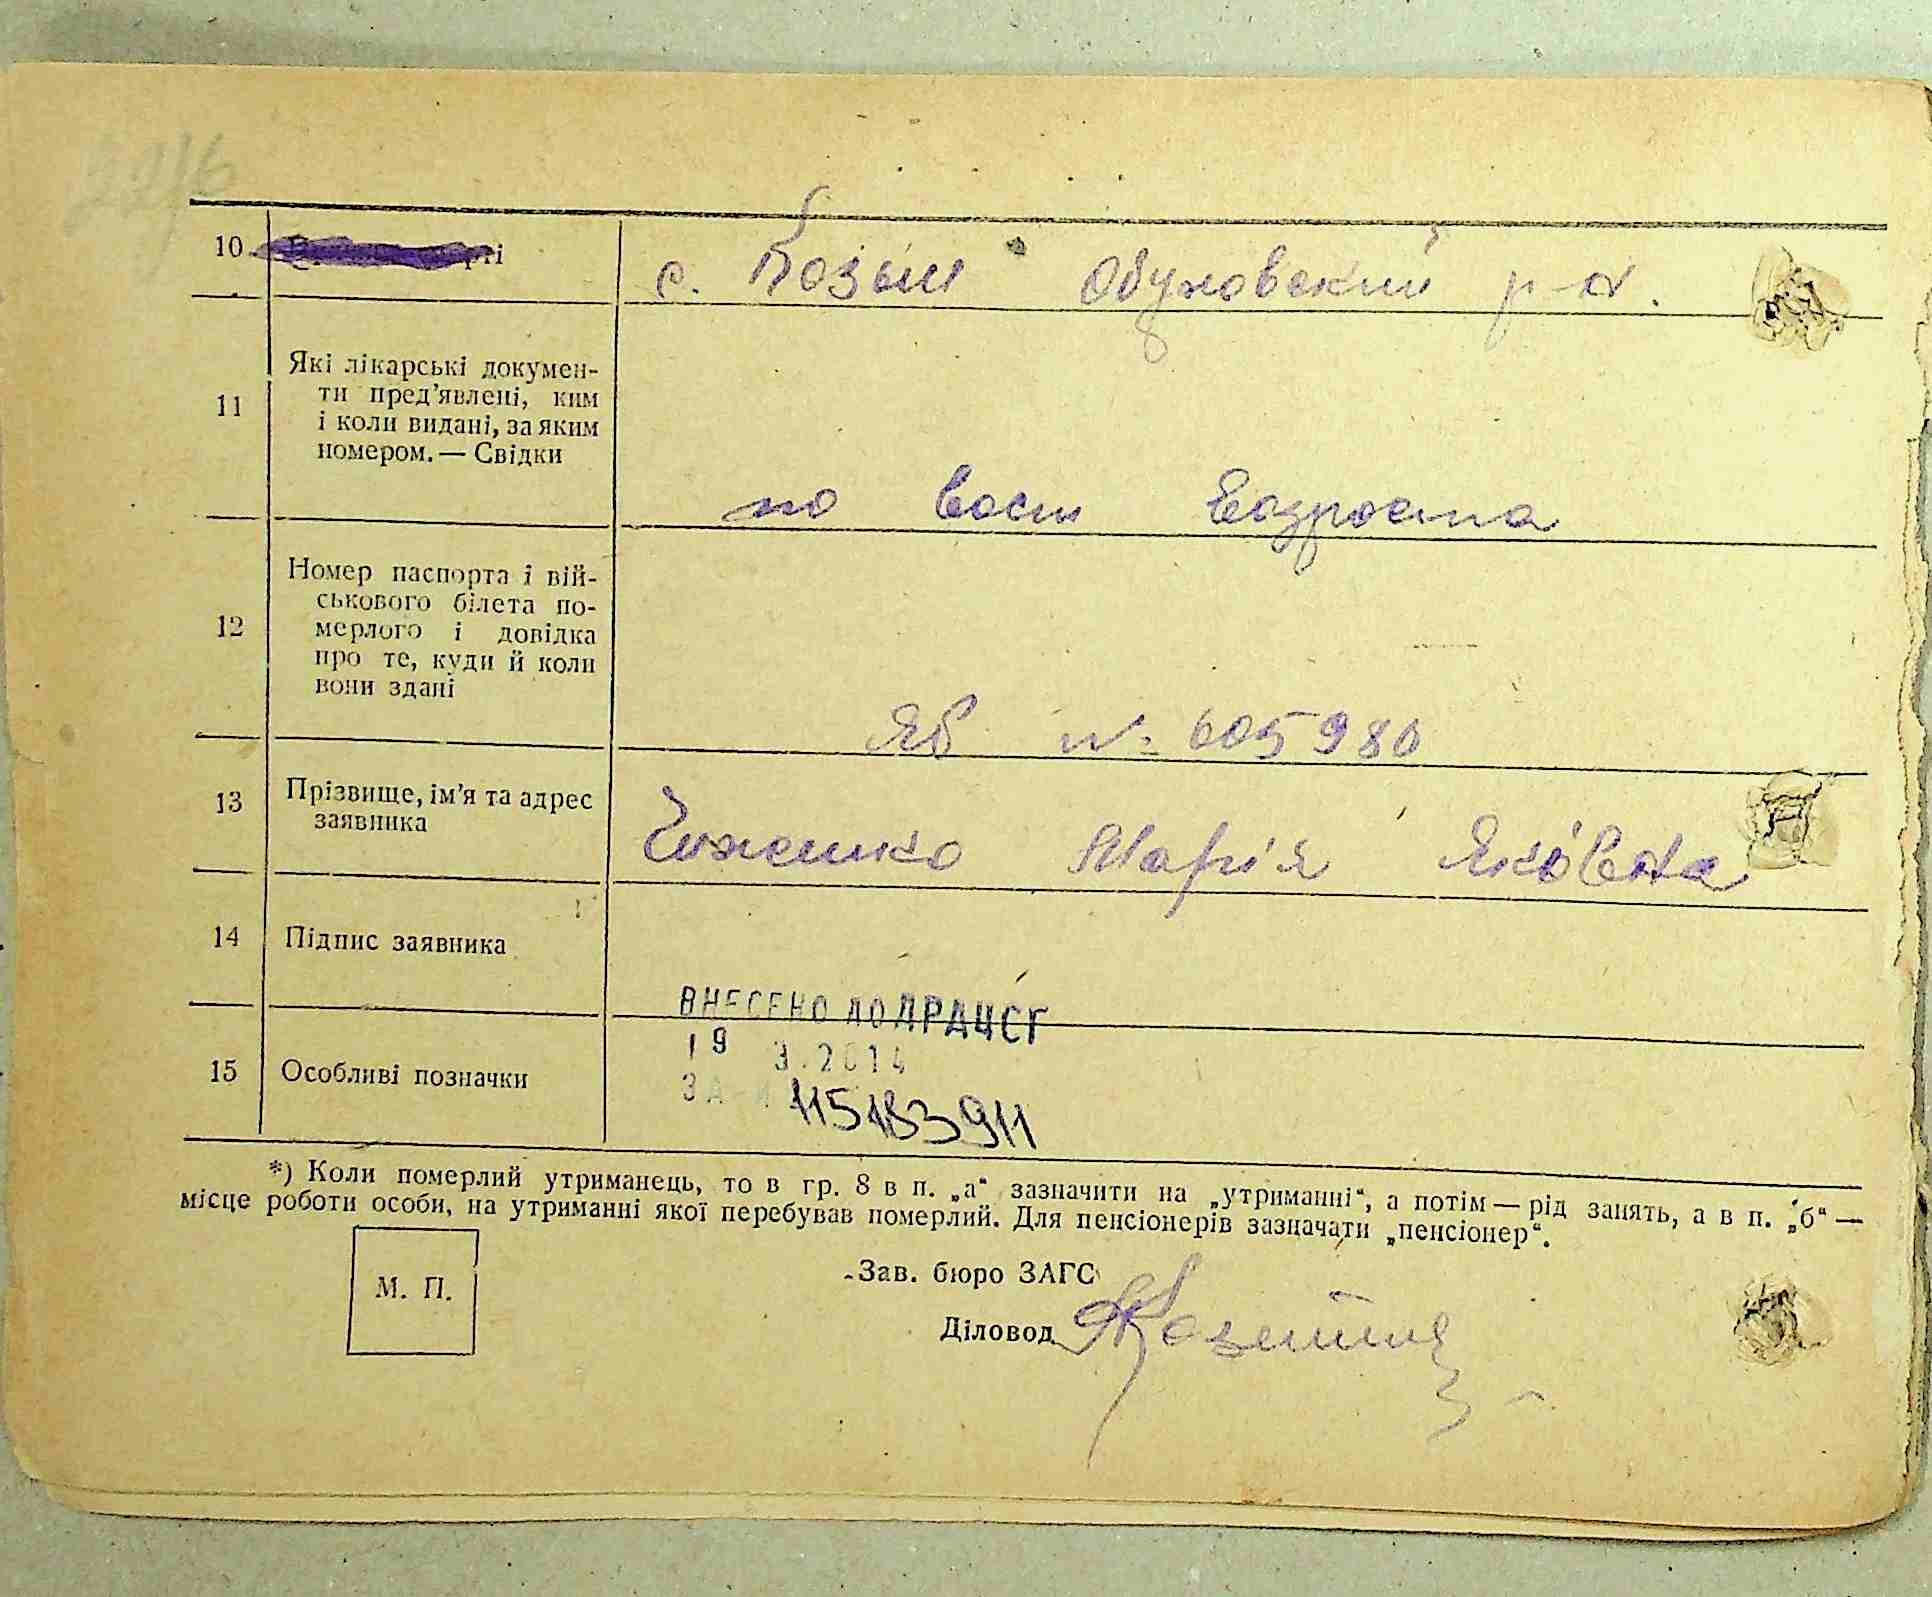 10
с. Козин Обуховский р-н.
11
Які лікарські докумен-
ти пред'явлені, ким
і коли видані, за яким
номером. — Свідки
по
возроста
12
Номер паспорта і вій-
ськового білета по-
мерлого і довідка
про те, куди й коли
вони здані
ЯБ № 605980
13
Прізвище, ім'я та адрес
заявника
Марія Яківна
14
Підпис заявника
ВНЕСЕНО ДО ДРАЦСГ
19 3.2014
ЗА
115183911
15
Особливі позначки
*) Коли померлий утриманець, то в гр. 8 в п. „а“ зазначити на „утриманні“, а потім — рід занять, а в п. „б“ —
місце роботи особи, на утриманні якої перебував померлий. Для пенсіонерів зазначати „пенсіонер“.
М. П.
Зав. бюро ЗАГС
Діловод